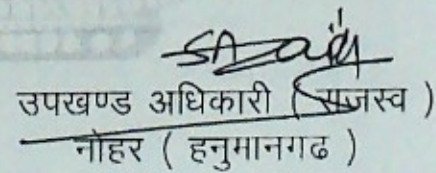 उपखण्ड अधिकारी (राजस्व )
नोहर ( हनुमानगढ )